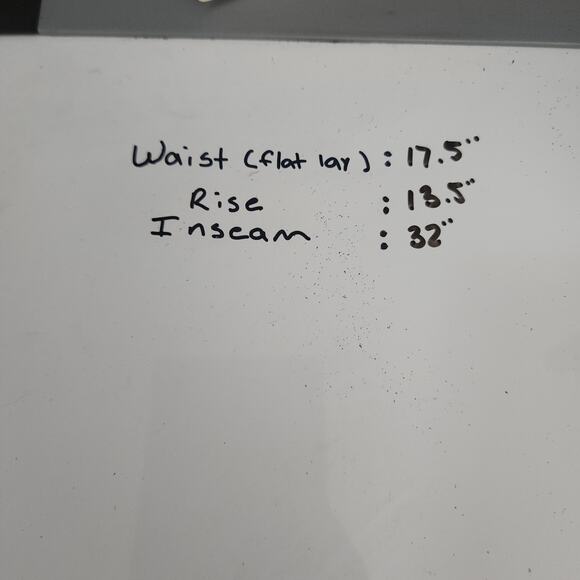 Waist (flat lay) : 17.5"
Rise : 13.5"
Inseam : 32"